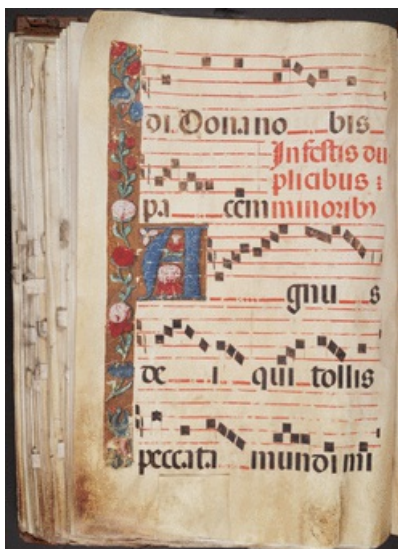 di Dona no bis
In festis du
plicibus :
pa cem minorib9
A gnu s
de i qui tollis
peccata mundi mi